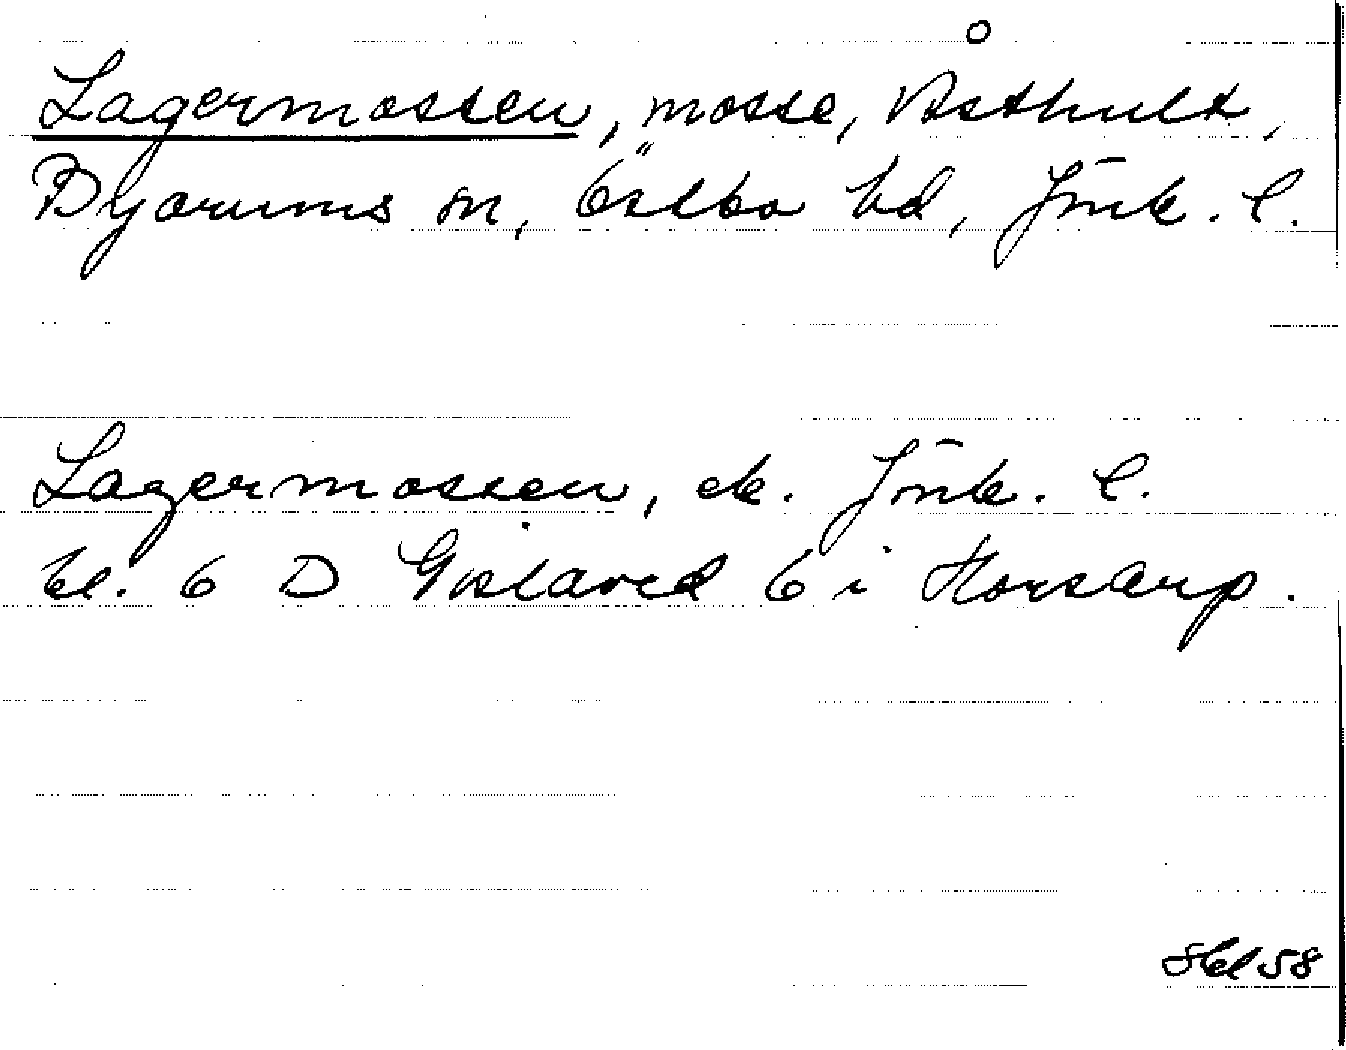 Lagermossen, mosse, Västhult,
Byarums sn, Östbo hd, Jönk. l.
Lagermossen, ek. Jönk. l.
bl. 6 D Gislaved 6 i Horsarp.
58